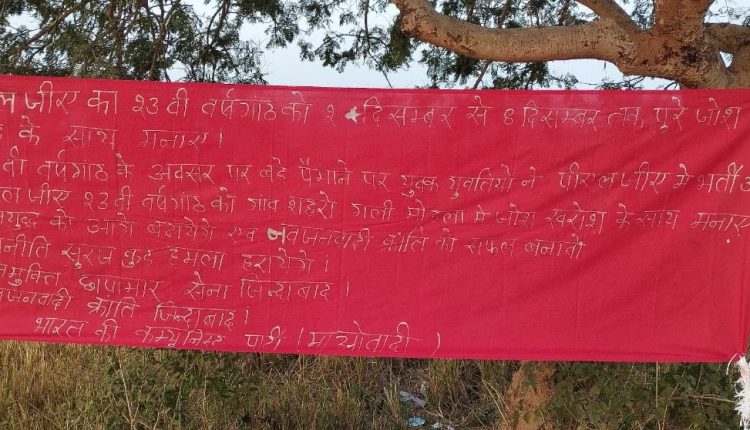 लजीए का 23 वी वर्षगांठ को 2 दिसम्बर से 8 दिसम्बर तक, पुरे जोश
के साथ मनाए।
वी वर्षगांठ के अवसर पर बड़े पैमाने पर युवक युवतियों ने पीएलजीए मे भर्ती
लजीए 23 वी वर्षगांठ को गांव शहरो गली मोहल्ला मे जोश खरोश के साथ मनाए
युद्ध को आगे बढ़ायेगे एवं नवजनवादी क्रांति को सफल बनावो
नीति सुरजकुंड हमला हरायेगे।
मुक्ति छापामार सेना जिन्दाबाद।
जनवादी क्रांति जिन्दाबाद।
भारत की कम्युनिस्ट पार्टी (माओवादी)